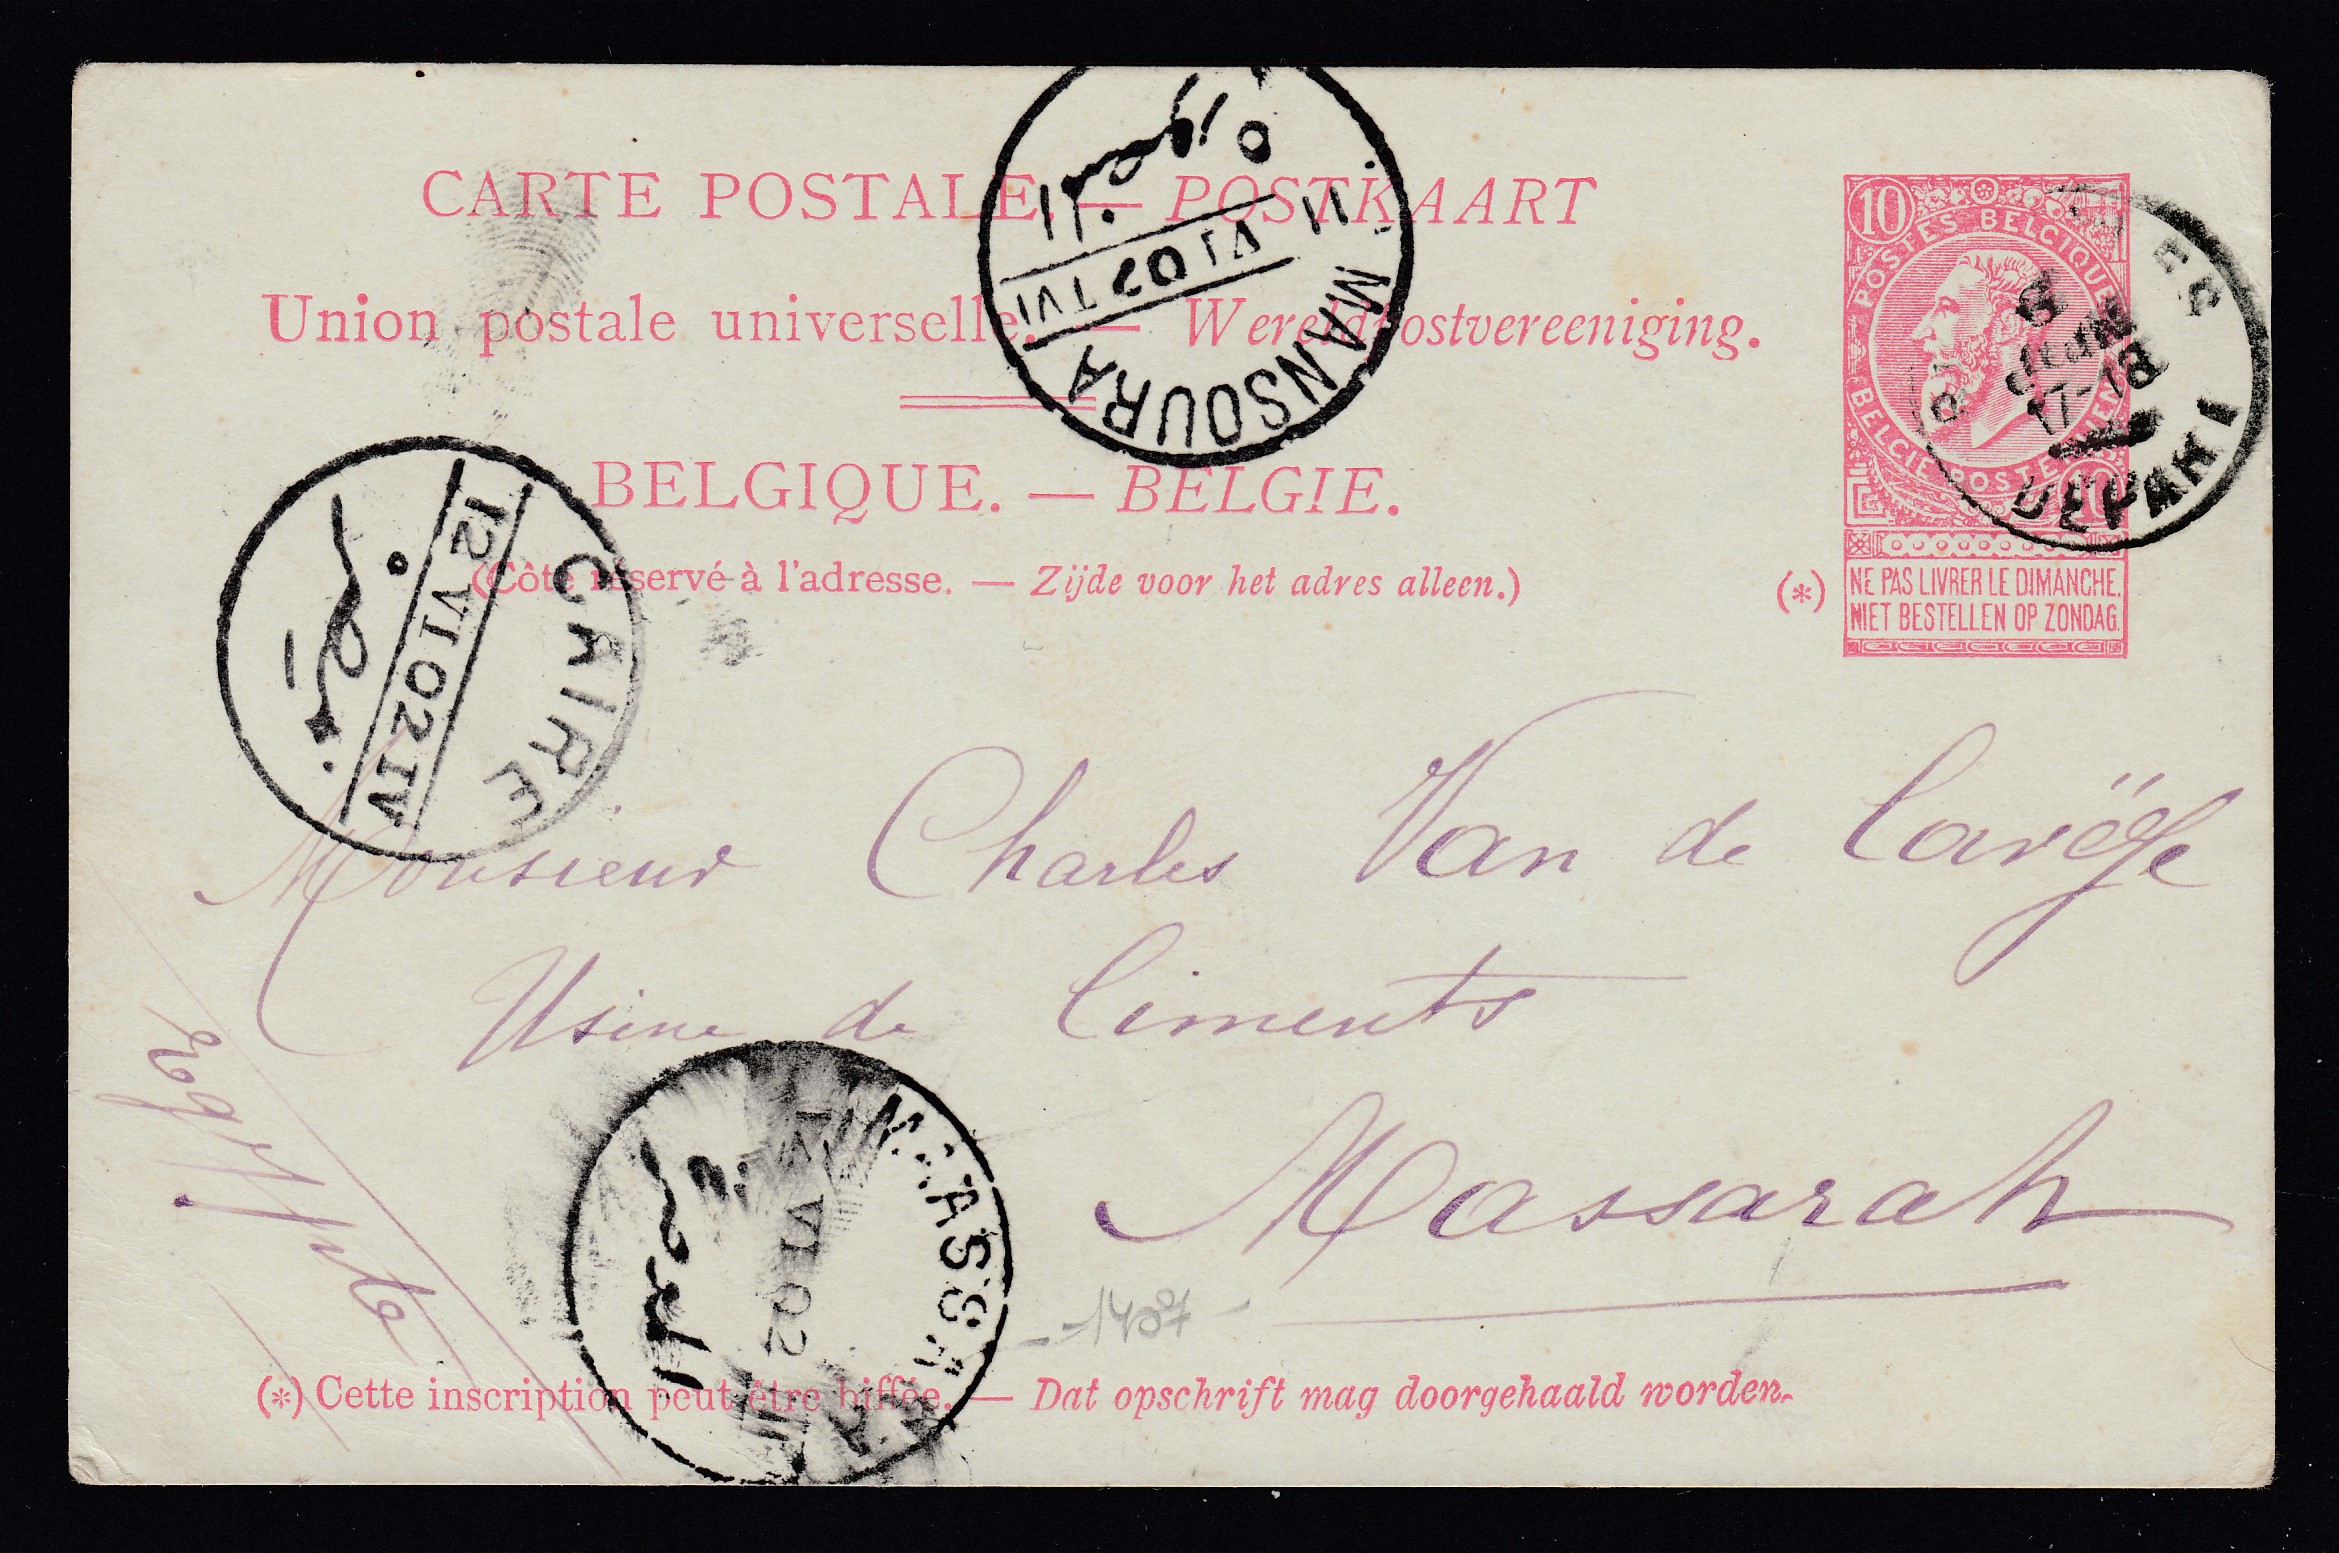 CARTE POSTALE. — POSTKAART
Union postale universelle. — Wereldpostvereeniging.
BELGIQUE. — BELGIE.
(Côté réservé à l'adresse. — Zijde voor het adres alleen.)
10
POSTES BELGIQUE
BELGIE POSTERIJEN
10
(*) NE PAS LIVRER LE DIMANCHE.
NIET BESTELLEN OP ZONDAG.
JUIN
17-18
DEPART 1
المنصورة
11 VI 02 TVI
MANSOURA
مصر
12 VI 02 TV
CAIRE
Monsieur Charles Van de
Usine de Ciments
Massarah
Egypte
المعصرة
VI 02
- 1487 -
(*) Cette inscription peut être biffée. — Dat opschrift mag doorgehaald worden.